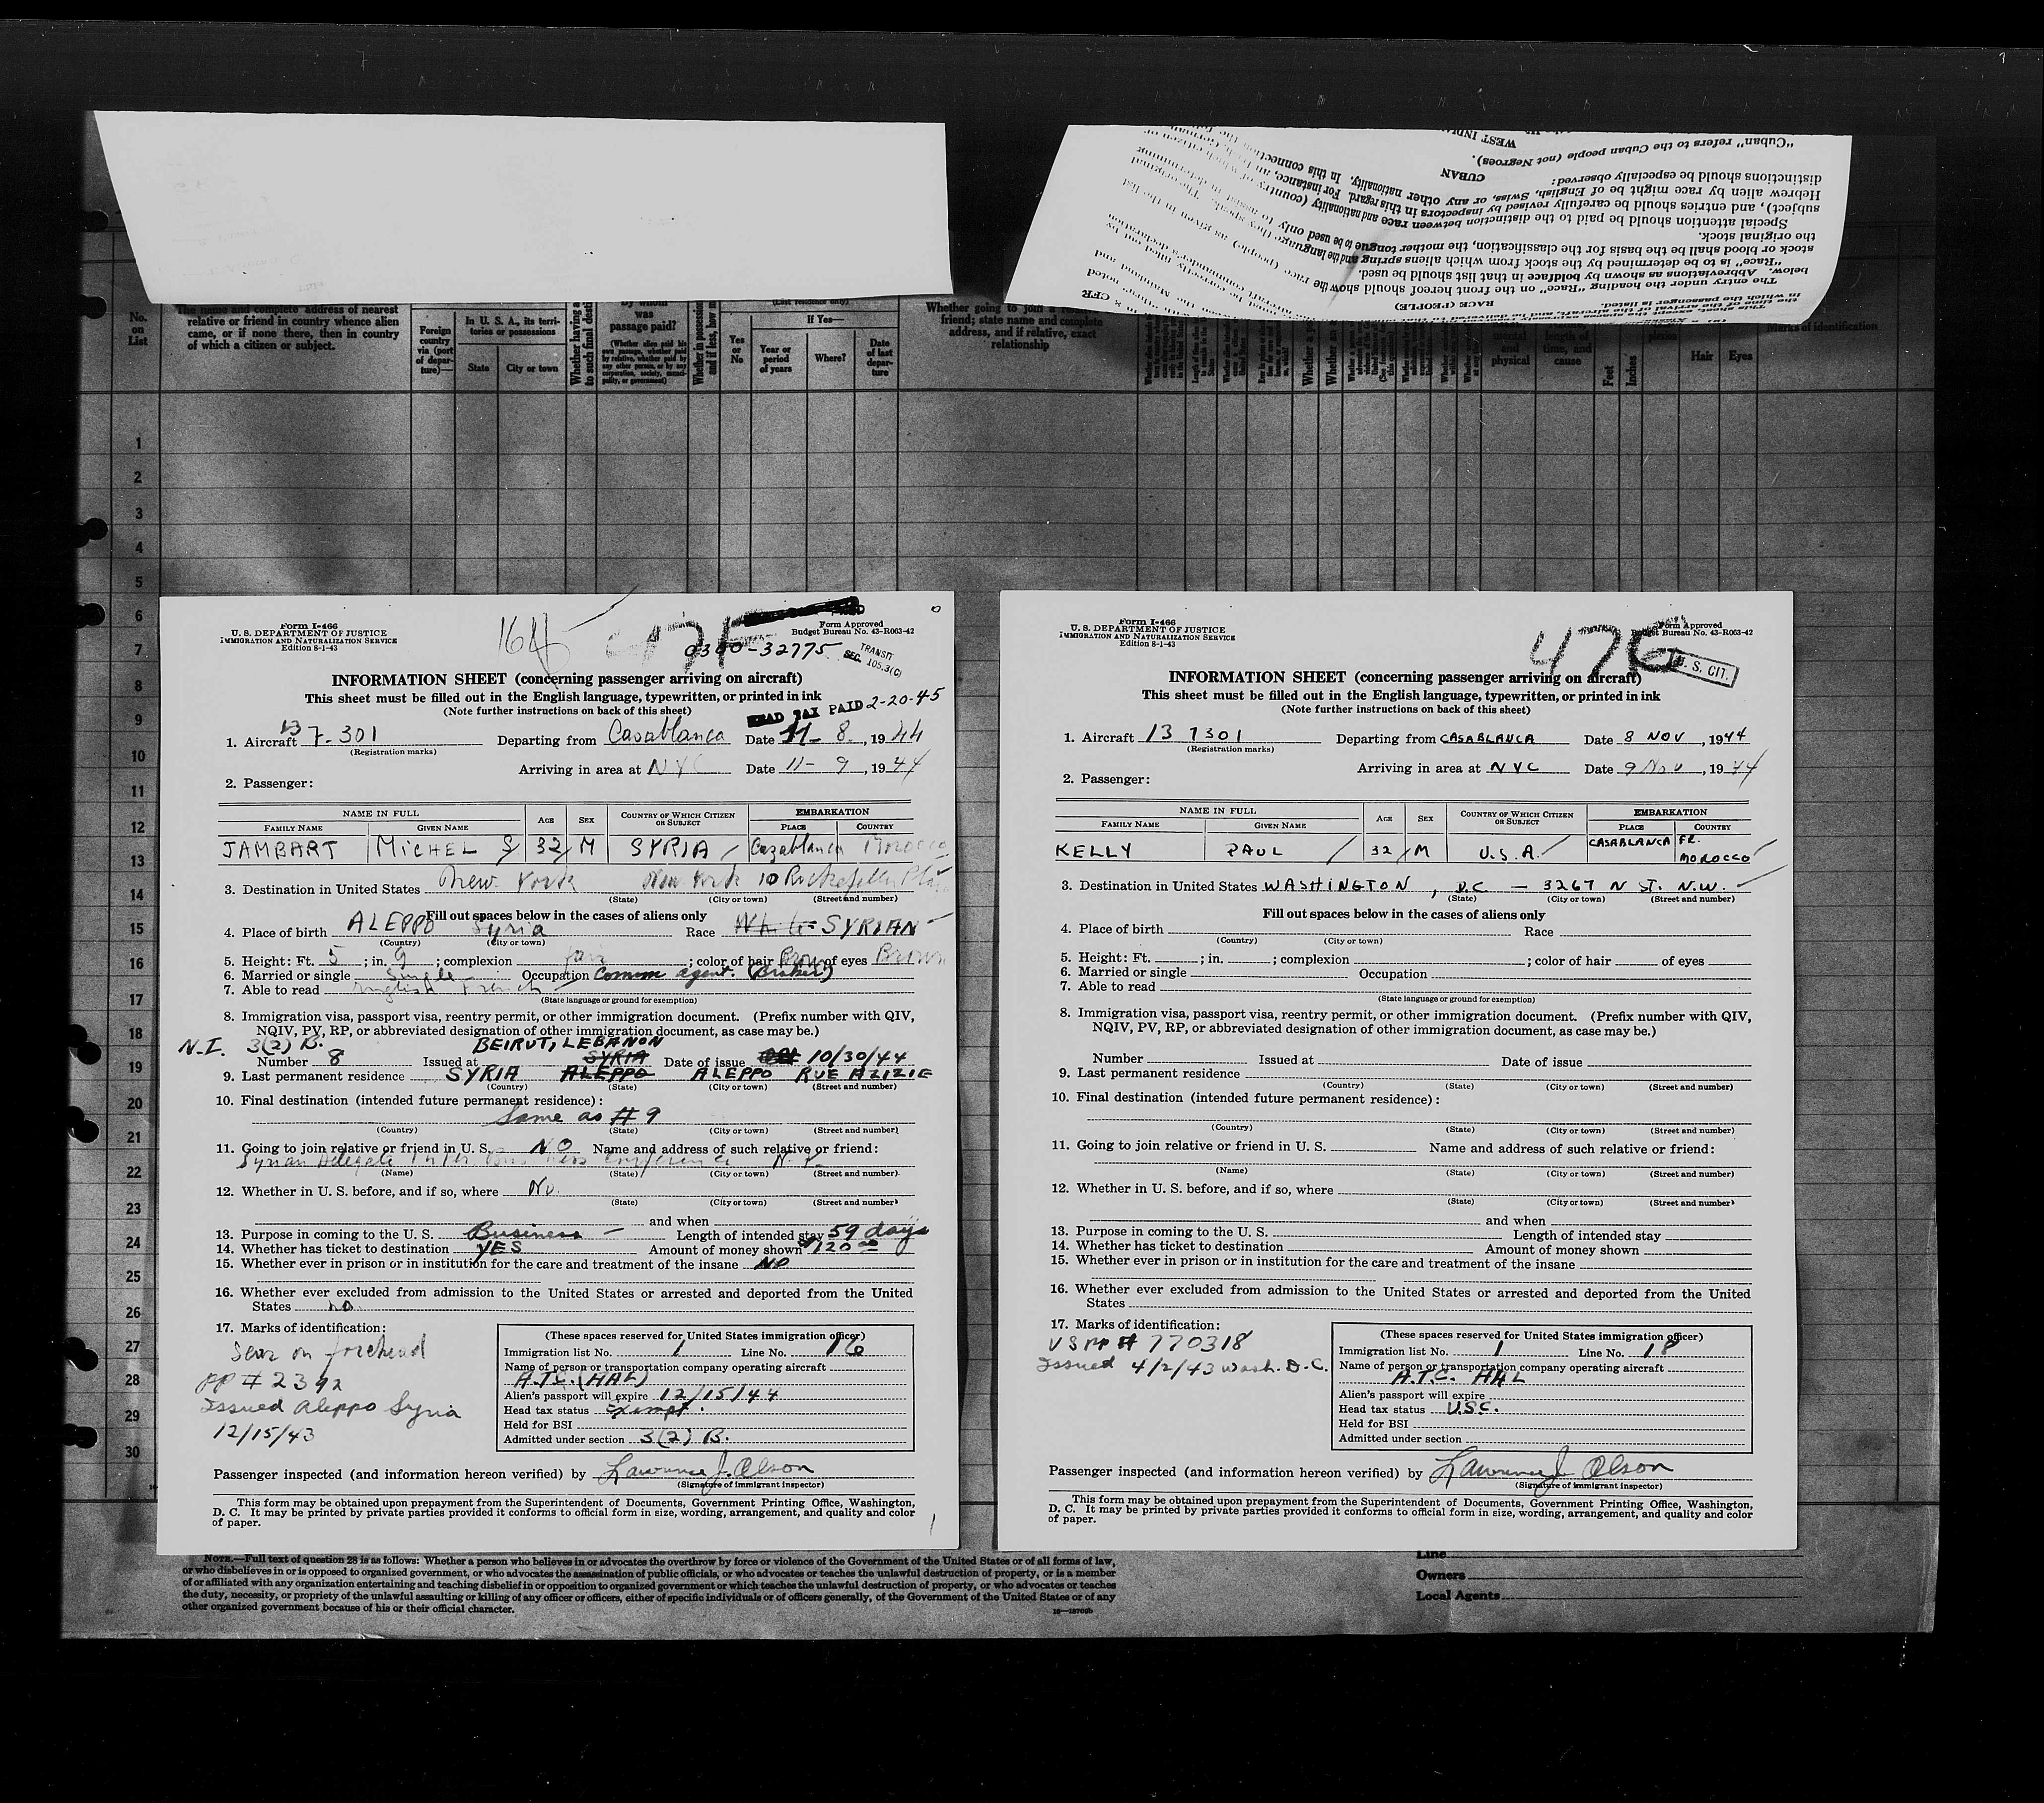 "Cuban" refers to the Cuban people (not Negroes).
CUBAN
distinctions should be especially observed:
Hebrew alien by race might be of English, Swiss, or any other nationality. In this connection the
subject), and entries should be carefully revised by inspectors in this regard. For instance, an
Special attention should be paid to the distinction between race and nationality (country
the original stock.
stock or blood shall be the basis for the classification, the mother tongue to be used only to assist in determining
"Race" is to be determined by the stock from which aliens spring and the language they speak. The original
below. Abbreviations as shown by boldface in that list should be used.
The entry under the heading "Race" on the front hereof should show the race (people) as given in the list
RACE (PEOPLE)
No. on List
The name and complete address of nearest relative or friend in country whence alien came, or if none there, then in country of which a citizen or subject.
Foreign country via (port of departure)—
In U. S. A., its territories or possessions
State
City or town
By whom was passage paid?
Yes or No
If Yes—
Year or period of years
Where?
Date of last departure
friend; state name and complete address, and if relative, exact relationship
mental and physical
length of time, and cause
Feet
Inches
Hair
Eyes
Marks of identification
1
2
3
4
5
6
7
8
9
10
11
12
13
14
15
16
17
18
19
20
21
22
23
24
25
26
27
28
29
30
Form I-466
U. S. DEPARTMENT OF JUSTICE
IMMIGRATION AND NATURALIZATION SERVICE
Edition 8-1-43
Form Approved
Budget Bureau No. 43-R063-42
0300-32775
TRANSIT
SEC. 105.3(C)
INFORMATION SHEET (concerning passenger arriving on aircraft)
This sheet must be filled out in the English language, typewritten, or printed in ink
(Note further instructions on back of this sheet)
HEAD TAX PAID 2-20-45
1. Aircraft 137-301 Departing from Casablanca Date 11-8, 1944
(Registration marks)
Arriving in area at NYC Date 11-9, 1944
2. Passenger:
NAME IN FULL AGE SEX COUNTRY OF WHICH CITIZEN OR SUBJECT EMBARKATION
FAMILY NAME GIVEN NAME PLACE COUNTRY
JAMBART MICHEL S 32 M SYRIA Cazablanca Morocco
3. Destination in United States New York New York 10 Rockefeller Plaza
(State) (City or town) (Street and number)
Fill out spaces below in the cases of aliens only
4. Place of birth ALEPPO Syria Race White SYRIAN
(Country) (City or town)
5. Height: Ft. 5; in. 9; complexion fair; color of hair Brown of eyes Brown
6. Married or single Single Occupation Comm agent. (Broker)
7. Able to read English French
(State language or ground for exemption)
8. Immigration visa, passport visa, reentry permit, or other immigration document. (Prefix number with QIV,
NQIV, PV, RP, or abbreviated designation of other immigration document, as case may be.)
N.I. 3(2) B. BEIRUT, LEBANON
Number 8 Issued at SYRIA Date of issue 10/30/44
9. Last permanent residence SYRIA ALEPPO ALEPPO RUE AZIZIE
(Country) (State) (City or town) (Street and number)
10. Final destination (intended future permanent residence):
Same as # 9
(Country) (State) (City or town) (Street and number)
11. Going to join relative or friend in U. S. NO Name and address of such relative or friend:
Syrian Delegate Inter Business Conference N.Y.
(Name) (State) (City or town) (Street and number)
12. Whether in U. S. before, and if so, where No.
(State) (City or town) (Street and number)
and when
13. Purpose in coming to the U. S. Business Length of intended stay 59 days
14. Whether has ticket to destination YES Amount of money shown $120.00
15. Whether ever in prison or in institution for the care and treatment of the insane NO
16. Whether ever excluded from admission to the United States or arrested and deported from the United
States no.
17. Marks of identification:
Scar on forehead
PP # 2392
Issued Aleppo Syria
12/15/43
(These spaces reserved for United States immigration officer)
Immigration list No. 1 Line No. 16
Name of person or transportation company operating aircraft
A.T.C. (HAL)
Alien's passport will expire 12/15/44
Head tax status Exempt.
Held for BSI
Admitted under section 3(2) B.
Passenger inspected (and information hereon verified) by Lawrence J. Olson
(Signature of immigrant inspector)
This form may be obtained upon prepayment from the Superintendent of Documents, Government Printing Office, Washington,
D. C. It may be printed by private parties provided it conforms to official form in size, wording, arrangement, and quality and color
of paper.
Form I-466
U. S. DEPARTMENT OF JUSTICE
IMMIGRATION AND NATURALIZATION SERVICE
Edition 8-1-43
Form Approved
Budget Bureau No. 43-R063-42
U. S. CIT.
INFORMATION SHEET (concerning passenger arriving on aircraft)
This sheet must be filled out in the English language, typewritten, or printed in ink
(Note further instructions on back of this sheet)
1. Aircraft 137301 Departing from CASABLANCA Date 8 NOV, 1944
(Registration marks)
Arriving in area at NYC Date 9 Nov, 1944
2. Passenger:
NAME IN FULL AGE SEX COUNTRY OF WHICH CITIZEN OR SUBJECT EMBARKATION
FAMILY NAME GIVEN NAME PLACE COUNTRY
KELLY PAUL 32 M U.S.A. CASABLANCA FR. MOROCCO
3. Destination in United States WASHINGTON, D.C. — 3267 N ST. N.W.
(State) (City or town) (Street and number)
Fill out spaces below in the cases of aliens only
4. Place of birth Race
(Country) (City or town)
5. Height: Ft. ; in. ; complexion ; color of hair of eyes
6. Married or single Occupation
7. Able to read
(State language or ground for exemption)
8. Immigration visa, passport visa, reentry permit, or other immigration document. (Prefix number with QIV,
NQIV, PV, RP, or abbreviated designation of other immigration document, as case may be.)
Number Issued at Date of issue
9. Last permanent residence
(Country) (State) (City or town) (Street and number)
10. Final destination (intended future permanent residence):
(Country) (State) (City or town) (Street and number)
11. Going to join relative or friend in U. S. Name and address of such relative or friend:
(Name) (State) (City or town) (Street and number)
12. Whether in U. S. before, and if so, where
(State) (City or town) (Street and number)
and when
13. Purpose in coming to the U. S. Length of intended stay
14. Whether has ticket to destination Amount of money shown
15. Whether ever in prison or in institution for the care and treatment of the insane
16. Whether ever excluded from admission to the United States or arrested and deported from the United
States
17. Marks of identification:
US PP # 770318
Issued 4/2/43 Wash. D.C.
(These spaces reserved for United States immigration officer)
Immigration list No. 1 Line No. 18
Name of person or transportation company operating aircraft
A.T.C. HAL
Alien's passport will expire
Head tax status U.S.C.
Held for BSI
Admitted under section
Passenger inspected (and information hereon verified) by Lawrence J. Olson
(Signature of immigrant inspector)
This form may be obtained upon prepayment from the Superintendent of Documents, Government Printing Office, Washington,
D. C. It may be printed by private parties provided it conforms to official form in size, wording, arrangement, and quality and color
of paper.
NOTE.—Full text of question 28 is as follows: Whether a person who believes in or advocates the overthrow by force or violence of the Government of the United States or of all forms of law,
or who disbelieves in or is opposed to organized government, or who advocates the assassination of public officials, or who advocates or teaches the unlawful destruction of property, or is a member
of or affiliated with any organization entertaining and teaching disbelief in or opposition to organized government or which teaches the unlawful destruction of property, or who advocates or teaches
the duty, necessity, or propriety of the unlawful assaulting or killing of any officer or officers, either of specific individuals or of officers generally, of the Government of the United States or of any
other organized government because of his or their official character.
Line
Owners
Local Agents